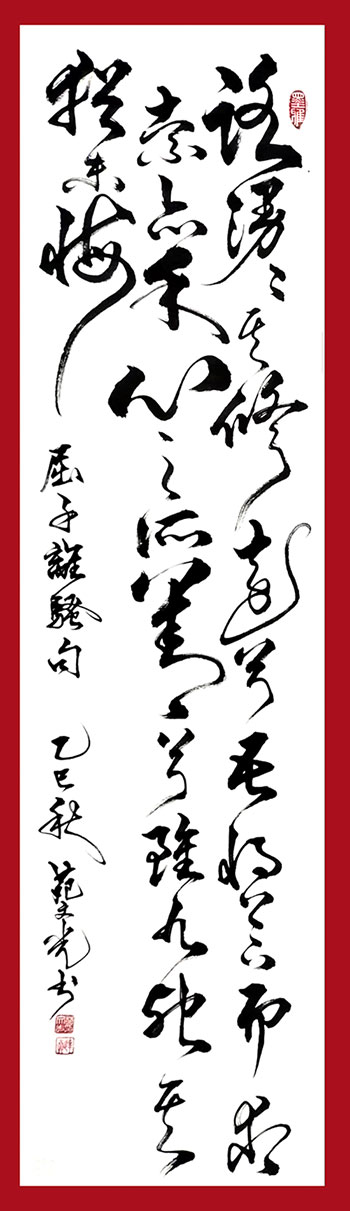 路漫漫其修遠兮吾将上下而求
索亦余心之所善兮雖九死其
猶未悔
屈子離騷句 乙巳秋 范文光书